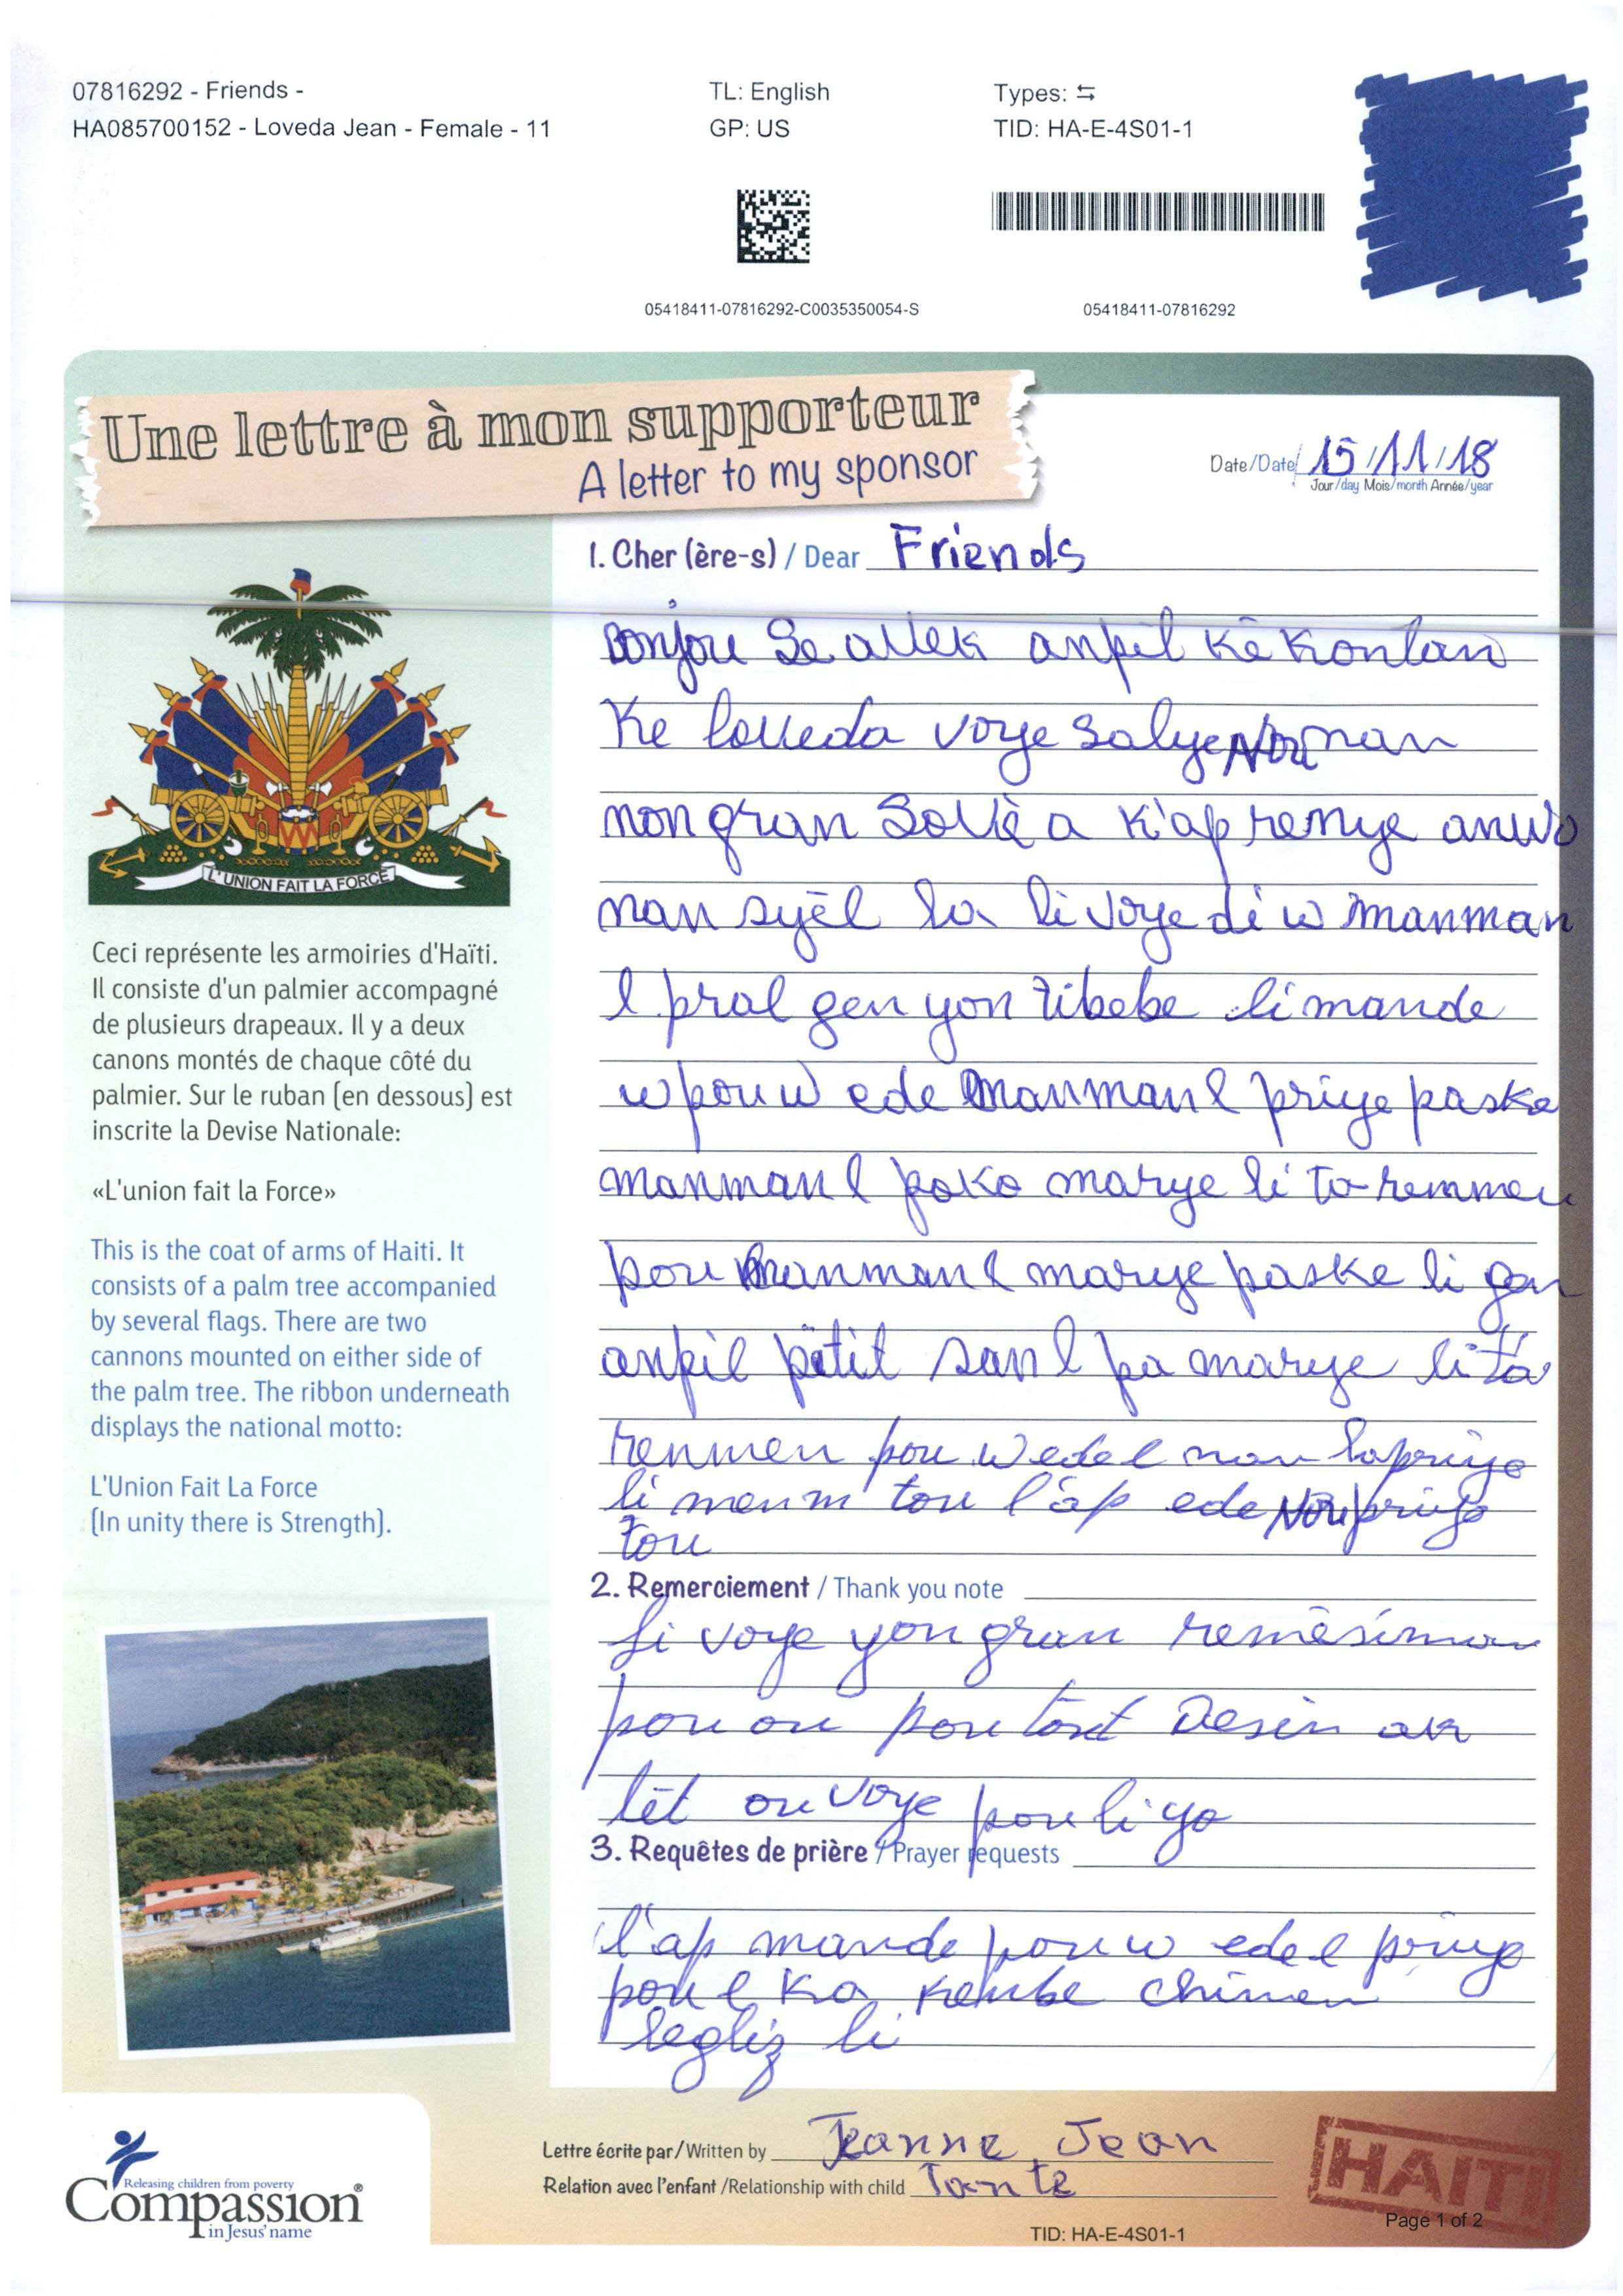 07816292 - Friends -
HA085700152 - Loveda Jean - Female - 11
TL: English
GP: US
Types: ⇆
TID: HA-E-4S01-1
05418411-07816292-C0035350054-S
05418411-07816292
Une lettre à mon supporteur
A letter to my sponsor
Date/Date 15/11/18
Jour/day Mois/month Année/year
1. Cher (ère-s) / Dear Friends
Bonjou Se avek anpil kè kontan
Ke loveda voye salye Nou nan
non gran Sovè a k'ap renye anwo
nan syèl la li voye di w manman
l pral gen yon tibebe li mande
w pou w ede manman l priye paske
manman l poko marye li ta renmen
pou manman l marye paske li gen
anpil pitit san l pa marye li ta
renmen pou w ede l nan lapriye
li menm tou l'ap ede Nou priye
tou
2. Remerciement / Thank you note
Li voye yon gran remèsiman
pou ou pou tout Desen ak
lèt ou voye pou li yo
3. Requêtes de prière / Prayer requests
l'ap mande pou w ede l priye
pou l ka kenbe chimen
legliz li
L'UNION FAIT LA FORCE
Ceci représente les armoiries d'Haïti.
Il consiste d'un palmier accompagné
de plusieurs drapeaux. Il y a deux
canons montés de chaque côté du
palmier. Sur le ruban (en dessous) est
inscrite la Devise Nationale:
«L'union fait la Force»
This is the coat of arms of Haiti. It
consists of a palm tree accompanied
by several flags. There are two
cannons mounted on either side of
the palm tree. The ribbon underneath
displays the national motto:
L'Union Fait La Force
(In unity there is Strength).
Releasing children from poverty
Compassion®
in Jesus' name
Lettre écrite par/Written by Jeanne Jean
Relation avec l'enfant /Relationship with child Tante
HAITI
Page 1 of 2
TID: HA-E-4S01-1